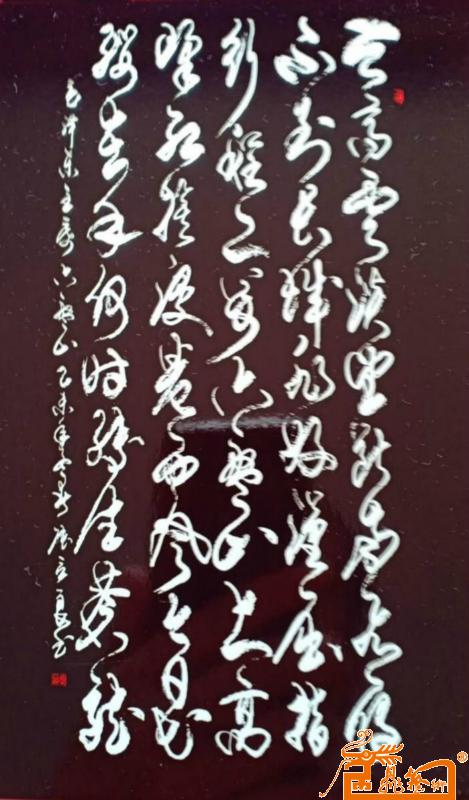 天高雲淡望断南飞雁
不到长城非好漢屈指
行程二万六盘山上高
峰红旗漫卷西风今日长
缨在手何时缚住苍龙
毛泽东主席六盘山乙未年